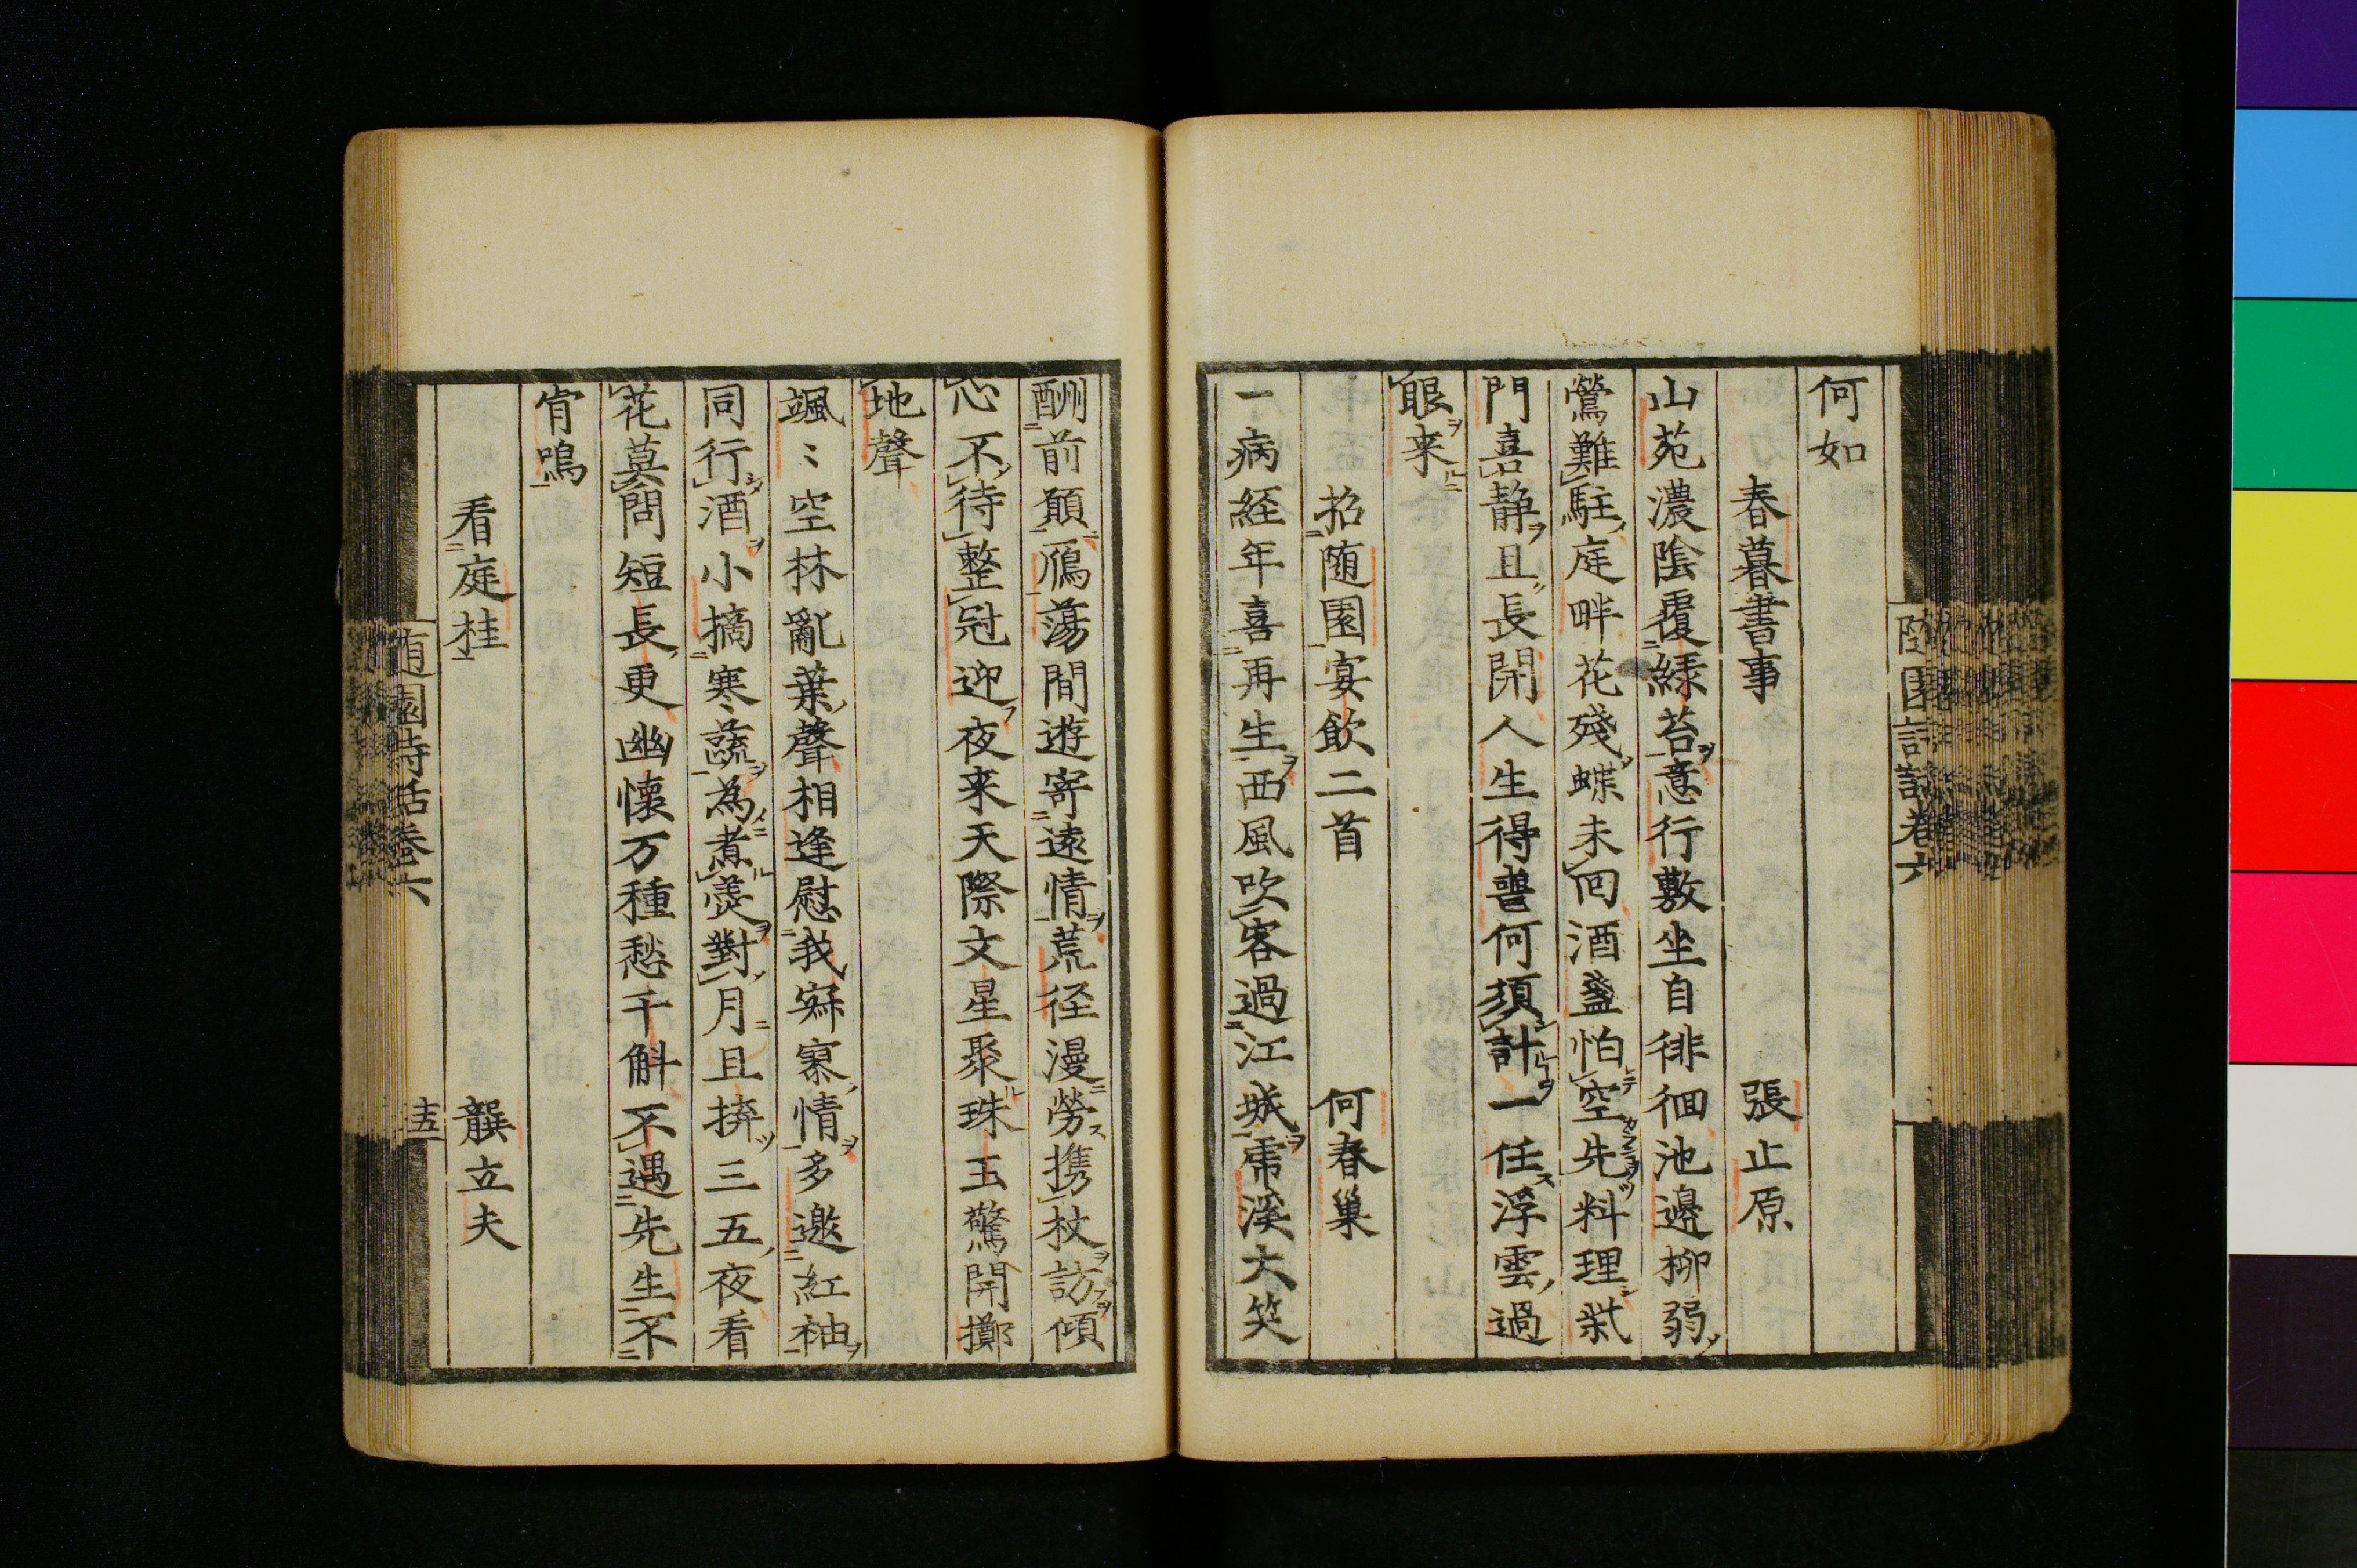 何如
春暮書事　張止原
山苑濃陰覆緑苔意行敷坐自徘徊池邊柳弱
鶯難駐庭畔花殘蝶未回酒盞怕空先料理
門喜静且長閉人生得喪何須計一任浮雲過
眼来
招随園宴飲二首　何春巢
一病経年喜再生西風吹客過江城虎溪大笑
酬前願鴈蕩間遊寄遠情荒径漫勞携杖訪傾
心不待整冠迎夜来天際文星聚珠玉驚開擲
地聲
颯〻空林亂葉聲相逢慰我寂寞情多邀紅袖
同行酒小摘寒蔬為煮羹對月且拚三五夜看
花莫問短長更幽懐万種愁千斛不遇先生不
肯鳴
看庭桂　龔立夫
随園詩話巻六